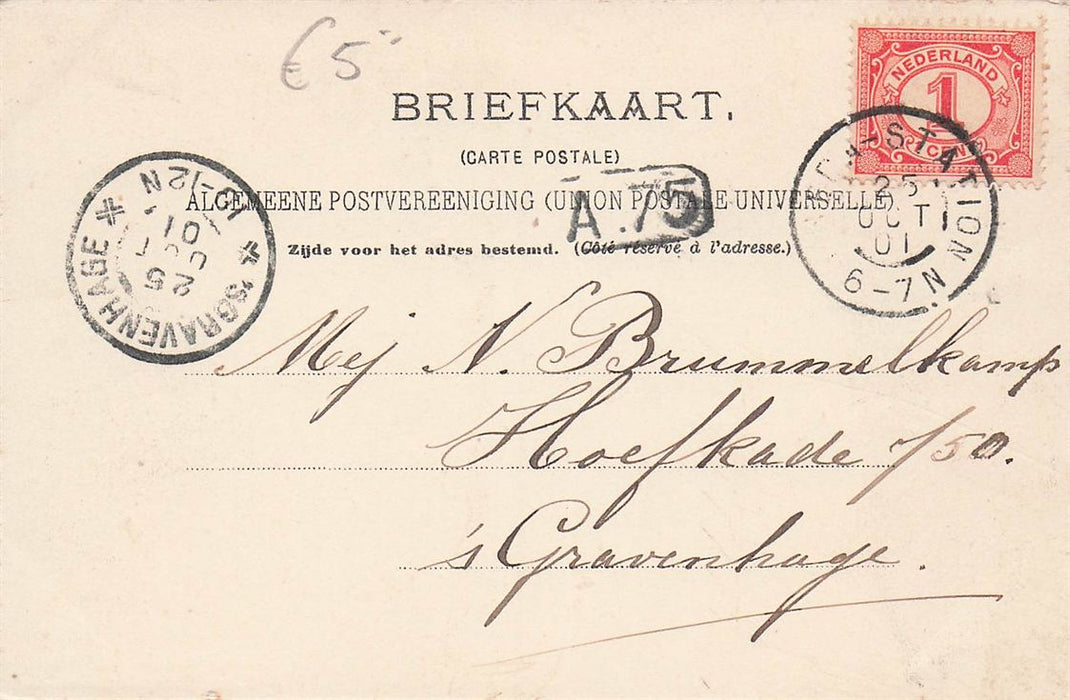 € 5
NEDERLAND
1
CENT
BRIEFKAART.
(CARTE POSTALE)
ALGEMEENE POSTVEREENIGING (UNION POSTALE UNIVERSELLE)
A.75
Zijde voor het adres bestemd. (Côté réservé à l'adresse.)
-STATION
25
OCT
01
6-7N
'SGRAVENHAGE
25
OCT
01
-12N
Mej N. Brummelkamp
Hoefkade 150.
's Gravenhage.